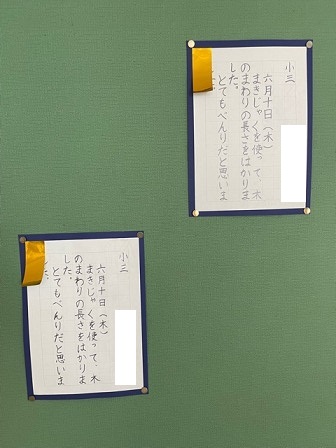 小三
六月十日（木）
まきじゃくを使って、木
のまわりの長さをはかりま
した。
とてもべんりだと思いま
した。
小三
六月十日（木）
まきじゃくを使って、木
のまわりの長さをはかりま
した。
とてもべんりだと思いま
した。